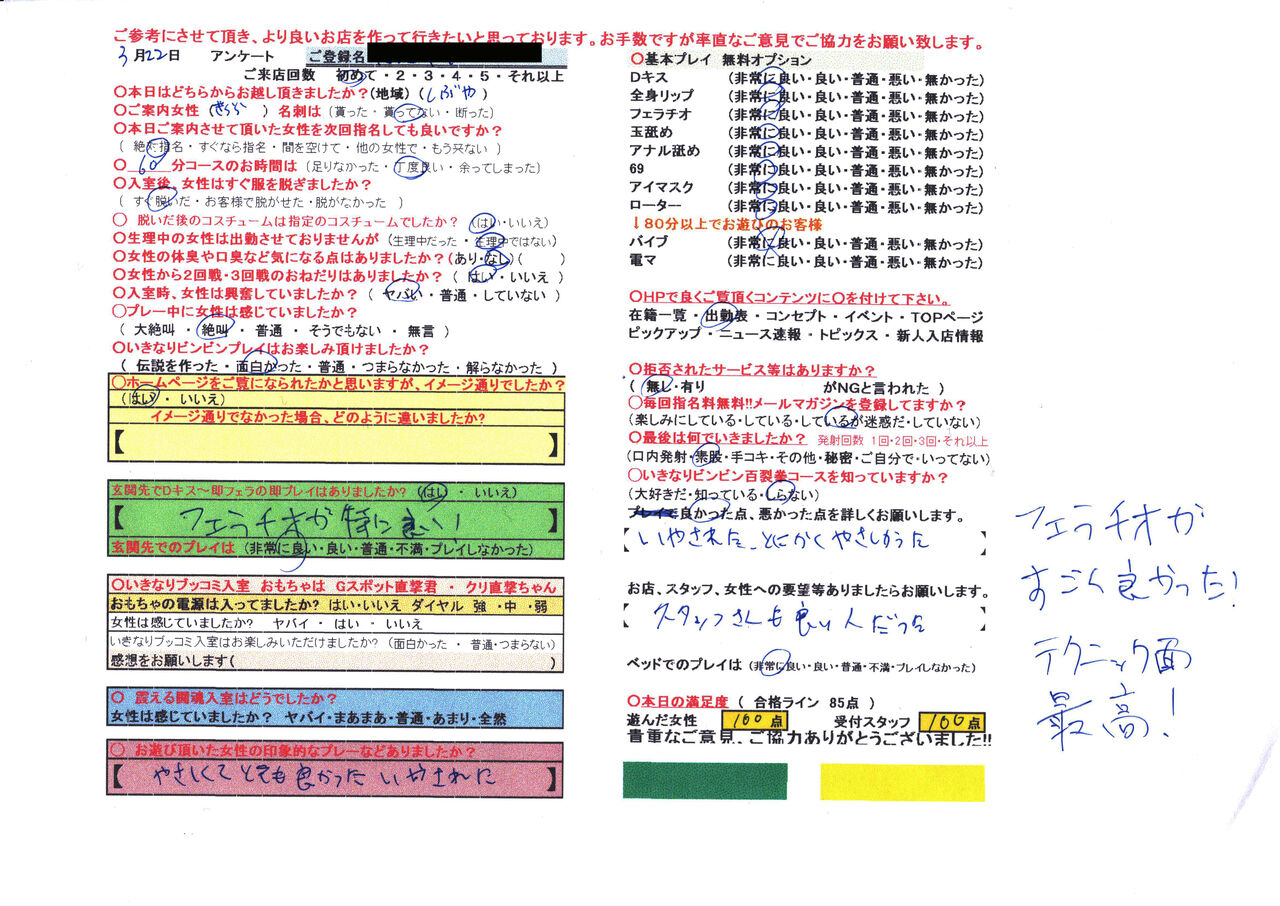 ご参考にさせて頂き、より良いお店を作って行きたいと思っております。お手数ですが率直なご意見でご協力をお願い致します。
3月22日 アンケート ご登録名
ご来店回数 初めて・2・3・4・5・それ以上
〇本日はどちらからお越し頂きましたか?(地域)(しぶや)
〇ご案内女性( )名刺は(貰った・貰ってない・断った)
〇本日ご案内させて頂いた女性を次回指名しても良いですか?
(絶対指名・すぐなら指名・間を空けて・他の女性で・もう来ない)
〇60分コースのお時間は(足りなかった・丁度良い・余ってしまった)
〇入室後、女性はすぐ服を脱ぎましたか?
(すぐ脱いだ・お客様で脱がせた・脱がなかった)
〇 脱いだ後のコスチュームは指定のコスチュームでしたか?(はい・いいえ)
〇生理中の女性は出勤させておりませんが(生理中だった・生理中ではない)
〇女性の体臭や口臭など気になる点はありましたか?(あり・なし)( )
〇女性から2回戦・3回戦のおねだりはありましたか?(はい・いいえ)
〇入室時、女性は興奮していましたか?(ヤバい・普通・していない)
〇プレー中に女性は感じていましたか?
(大絶叫・絶叫・普通・そうでもない・無言)
〇いきなりビンビンプレイはお楽しみ頂けましたか?
(伝説を作った・面白かった・普通・つまらなかった・解らなかった)
〇ホームページをご覧になられたかと思いますが、イメージ通りでしたか?
(はい・いいえ)
イメージ通りでなかった場合、どのように違いましたか?
【 】
玄関先でDキス～即フェラの即プレイはありましたか?(はい・いいえ)
【フェラチオが特に良い】
玄関先でのプレイは(非常に良い・良い・普通・不満・プレイしなかった)
〇いきなりブッコミ入室 おもちゃは Gスポット直撃君・クリ直撃ちゃん
おもちゃの電源は入ってましたか? はい・いいえ ダイヤル 強・中・弱
女性は感じていましたか? ヤバイ・はい・いいえ
いきなりブッコミ入室はお楽しみいただけましたか?(面白かった・普通・つまらない)
感想をお願いします( )
〇 震える闘魂入室はどうでしたか?
女性は感じていましたか? ヤバイ・まあまあ・普通・あまり・全然
〇 お遊び頂いた女性の印象的なプレーなどありましたか?
【やさしくてとても良かった いやされた】
〇基本プレイ 無料オプション
Dキス (非常に良い・良い・普通・悪い・無かった)
全身リップ (非常に良い・良い・普通・悪い・無かった)
フェラチオ (非常に良い・良い・普通・悪い・無かった)
玉舐め (非常に良い・良い・普通・悪い・無かった)
アナル舐め (非常に良い・良い・普通・悪い・無かった)
69 (非常に良い・良い・普通・悪い・無かった)
アイマスク (非常に良い・良い・普通・悪い・無かった)
ローター (非常に良い・良い・普通・悪い・無かった)
↓80分以上でお遊びのお客様
バイブ (非常に良い・良い・普通・悪い・無かった)
電マ (非常に良い・良い・普通・悪い・無かった)
〇HPで良くご覧頂くコンテンツに〇を付けて下さい。
在籍一覧・出勤表・コンセプト・イベント・TOPページ
ピックアップ・ニュース速報・トピックス・新人入店情報
〇拒否されたサービス等はありますか?
(無し・有り がNGと言われた)
〇毎回指名料無料!!メールマガジンを登録してますか?
(楽しみにしている・している・しているが迷惑だ・していない)
〇最後は何でいきましたか? 発射回数 1回・2回・3回・それ以上
(口内発射・素股・手コキ・その他・秘密・ご自分で・いってない)
〇いきなりビンビン百裂拳コースを知っていますか?
(大好きだ・知っている・しらない)
プレイで良かった点、悪かった点を詳しくお願いします。
【いやされた、とにかくやさしかった】
お店、スタッフ、女性への要望等ありましたらお願いします。
【スタッフさんも良い人だった】
ベッドでのプレイは(非常に良い・良い・普通・不満・プレイしなかった)
〇本日の満足度(合格ライン 85点)
遊んだ女性 100点 受付スタッフ 100点
貴重なご意見、ご協力ありがとうございました!!
フェラチオが
すごく良かった!
テクニック面
最高!